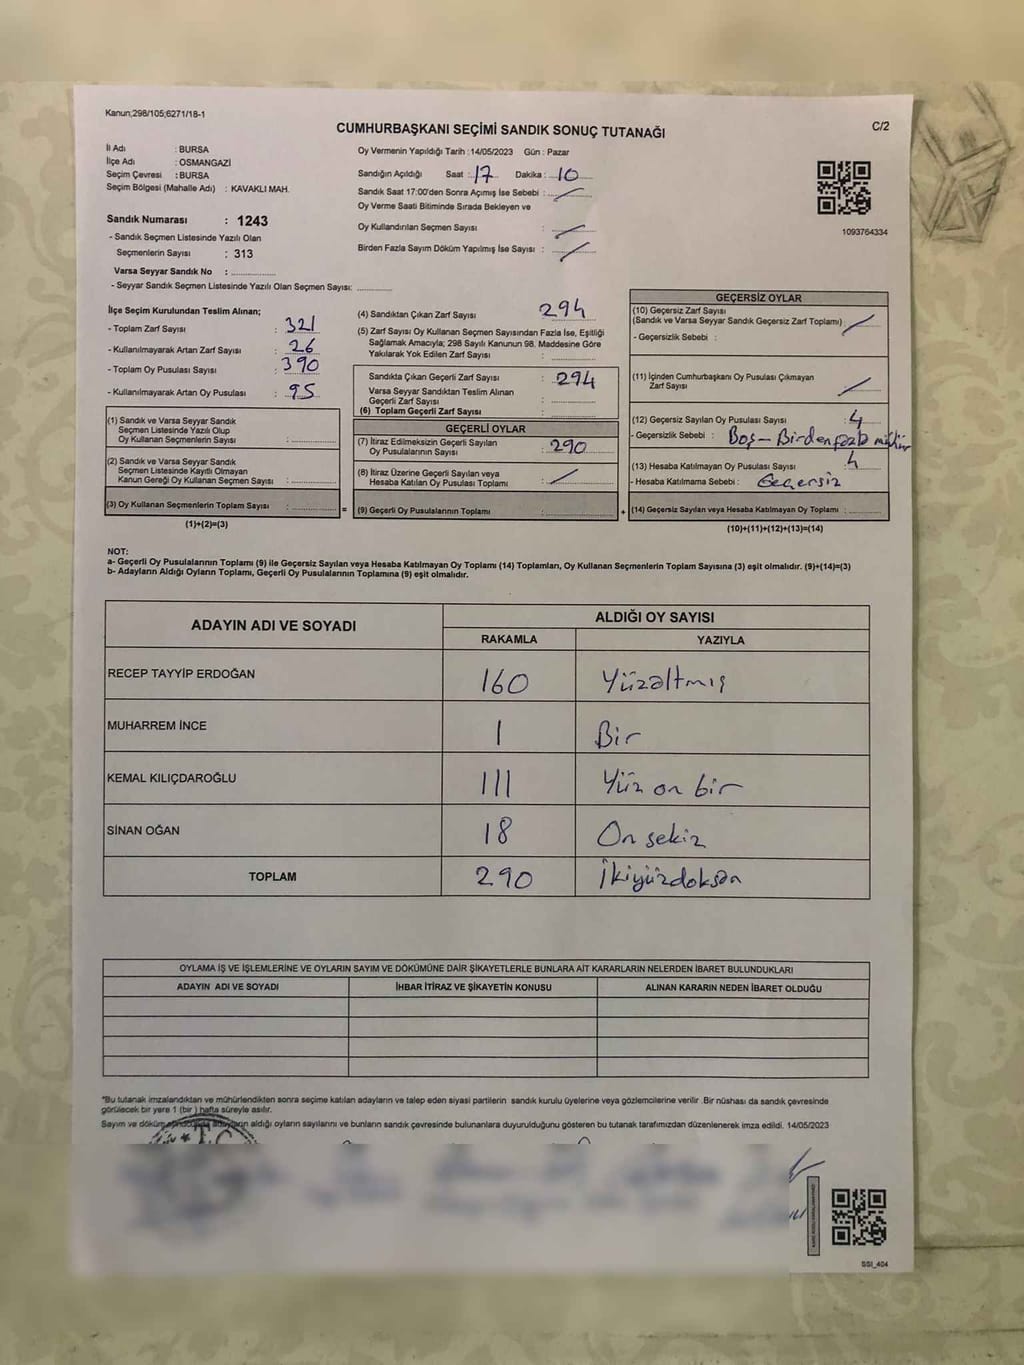 Kanun;298/105;6271/18-1
CUMHURBAŞKANI SEÇİMİ SANDIK SONUÇ TUTANAĞI
C/2
İl Adı : BURSA
İlçe Adı : OSMANGAZİ
Seçim Çevresi : BURSA
Seçim Bölgesi (Mahalle Adı) : KAVAKLI MAH.
Sandık Numarası : 1243
- Sandık Seçmen Listesinde Yazılı Olan
Seçmenlerin Sayısı : 313
Varsa Seyyar Sandık No : ............
- Seyyar Sandık Seçmen Listesinde Yazılı Olan Seçmen Sayısı: ............
Oy Vermenin Yapıldığı Tarih :14/05/2023 Gün : Pazar
Sandığın Açıldığı Saat : 17 Dakika : 10
Sandık Saat 17:00'den Sonra Açımış İse Sebebi :
Oy Verme Saati Bitiminde Sırada Bekleyen ve
Oy Kullandırılan Seçmen Sayısı :
Birden Fazla Sayım Döküm Yapılmış İse Sayısı :
1093764334
İlçe Seçim Kurulundan Teslim Alınan;
- Toplam Zarf Sayısı : 321
- Kullanılmayarak Artan Zarf Sayısı : 26
- Toplam Oy Pusulası Sayısı : 390
- Kullanılmayarak Artan Oy Pusulası : 95
(1) Sandık ve Varsa Seyyar Sandık
Seçmen Listesinde Yazılı Olup
Oy Kullanan Seçmenlerin Sayısı : ............
(2) Sandık ve Varsa Seyyar Sandık
Seçmen Listesinde Kayıtlı Olmayan
Kanun Gereği Oy Kullanan Seçmen Sayısı : ............
(3) Oy Kullanan Seçmenlerin Toplam Sayısı : ............
(1)+(2)=(3)
=
(4) Sandıktan Çıkan Zarf Sayısı : 294
(5) Zarf Sayısı Oy Kullanan Seçmen Sayısından Fazla İse, Eşitliği
Sağlamak Amacıyla; 298 Sayılı Kanunun 98. Maddesine Göre
Yakılarak Yok Edilen Zarf Sayısı : ............
Sandıkta Çıkan Geçerli Zarf Sayısı : 294
Varsa Seyyar Sandıktan Teslim Alınan
Geçerli Zarf Sayısı : ............
(6) Toplam Geçerli Zarf Sayısı : ............
GEÇERLİ OYLAR
(7) İtiraz Edilmeksizin Geçerli Sayılan
Oy Pusulalarının Sayısı : 290
(8) İtiraz Üzerine Geçerli Sayılan veya
Hesaba Katılan Oy Pusulası Toplamı :
(9) Geçerli Oy Pusulalarının Toplamı : ............
+
GEÇERSİZ OYLAR
(10) Geçersiz Zarf Sayısı
(Sandık ve Varsa Seyyar Sandık Geçersiz Zarf Toplamı) :
- Geçersizlik Sebebi :
(11) İçinden Cumhurbaşkanı Oy Pusulası Çıkmayan
Zarf Sayısı :
(12) Geçersiz Sayılan Oy Pusulası Sayısı : 4
- Geçersizlik Sebebi : Boş - Birden fazla mühür
(13) Hesaba Katılmayan Oy Pusulası Sayısı : 4
- Hesaba Katılmama Sebebi : Geçersiz
(14) Geçersiz Sayılan veya Hesaba Katılmayan Oy Toplamı : ............
(10)+(11)+(12)+(13)=(14)
NOT:
a- Geçerli Oy Pusulalarının Toplamı (9) ile Geçersiz Sayılan veya Hesaba Katılmayan Oy Toplamı (14) Toplamları, Oy Kullanan Seçmenlerin Toplam Sayısına (3) eşit olmalıdır. (9)+(14)=(3)
b- Adayların Aldığı Oyların Toplamı, Geçerli Oy Pusulalarının Toplamına (9) eşit olmalıdır.
ADAYIN ADI VE SOYADI
ALDIĞI OY SAYISI
RAKAMLA YAZIYLA
RECEP TAYYİP ERDOĞAN 160 Yüzaltmış
MUHARREM İNCE 1 Bir
KEMAL KILIÇDAROĞLU 111 Yüz on bir
SİNAN OĞAN 18 On sekiz
TOPLAM 290 İkiyüzdoksan
OYLAMA İŞ VE İŞLEMLERİNE VE OYLARIN SAYIM VE DÖKÜMÜNE DAİR ŞİKAYETLERLE BUNLARA AİT KARARLARIN NELERDEN İBARET BULUNDUKLARI
ADAYIN ADI VE SOYADI İHBAR İTİRAZ VE ŞİKAYETİN KONUSU ALINAN KARARIN NEDEN İBARET OLDUĞU
*Bu tutanak imzalandıktan ve mühürlendikten sonra seçime katılan adayların ve talep eden siyasi partilerin sandık kurulu üyelerine veya gözlemcilerine verilir .Bir nüshası da sandık çevresinde
görülecek bir yere 1 (bir ) hafta süreyle asılır.
Sayım ve döküm adayların aldığı oyların sayılarını ve bunların sandık çevresinde bulunanlara duyurulduğunu gösteren bu tutanak tarafımızdan düzenlenerek imza edildi. 14/05/2023
T.C.
SSI_404